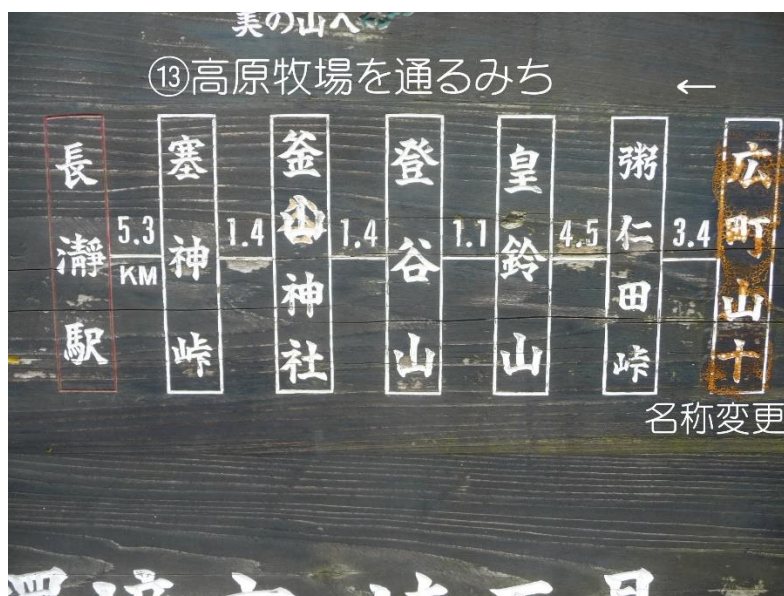 美の山へ
⑬高原牧場を通るみち ←
長瀞駅 5.3 KM 塞神峠 1.4 釜山神社 1.4 登谷山 1.1 皇鈴山 4.5 粥仁田峠 3.4 広町山十
名称変更